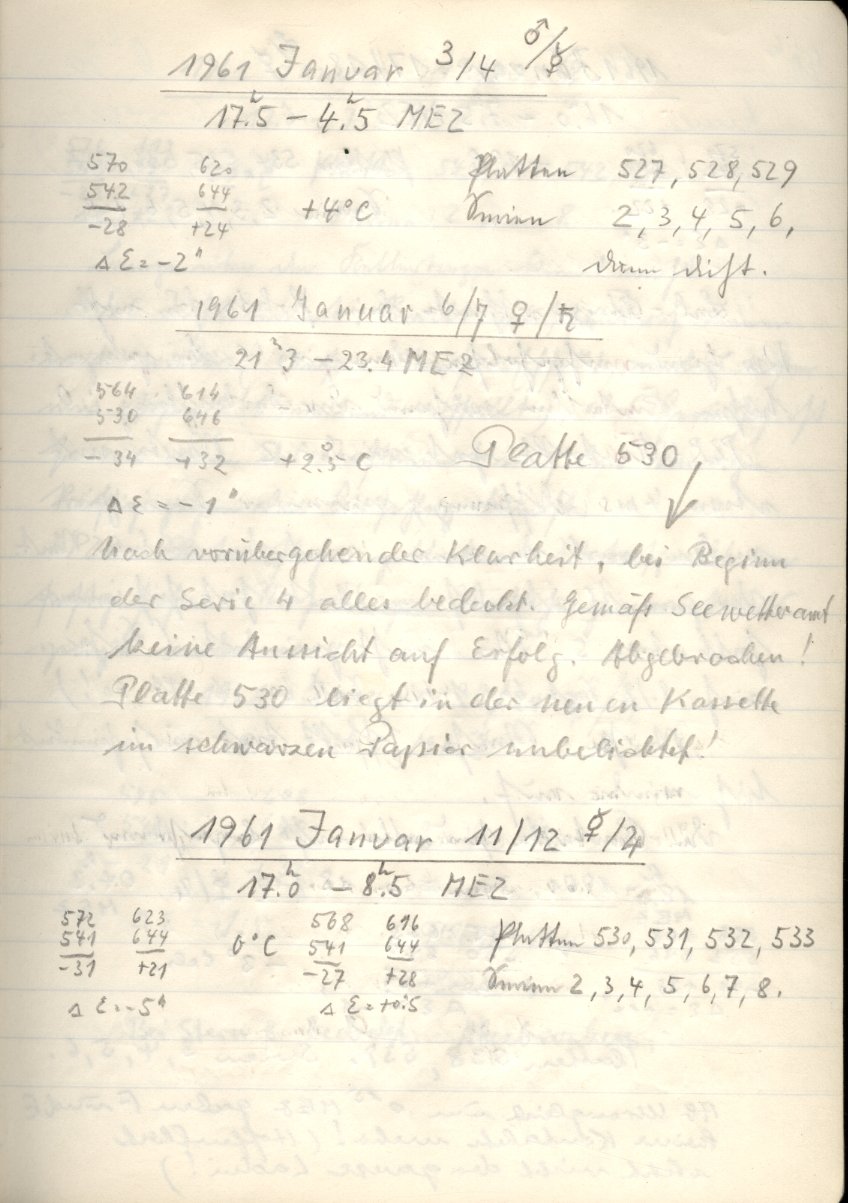 1961 Januar 3/4 ♂/☿
17.ʰ5 – 4.ʰ5 MEZ
570 620 Platten 527, 528, 529
542 644 +4°C Serien 2, 3, 4, 5, 6,
-28 +24
Δ Ɛ = -2" dann dicht.
1961 Januar 6/7 ♀/♄
21ʰ3 – 23.4 MEZ
564 614
530 646
-34 +32 +2.°5 C Platte 530
Δ Ɛ = -1"
Nach vorübergehender Klarheit, bei Beginn
der Serie 4 alles bedeckt. Gemäß Seewetteramt
keine Aussicht auf Erfolg. Abgebrochen!
Platte 530 liegt in der neuen Kassette
im schwarzen Papier unbelichtet!
1961 Januar 11/12 ☿/♃
17.ʰ0 – 8.ʰ5 MEZ
572 623 568 616 Platten 530, 531, 532, 533
541 644 0°C 541 644
-31 +21 -27 +28 Serien 2, 3, 4, 5, 6, 7, 8.
Δ Ɛ = -5" Δ Ɛ = +0.5